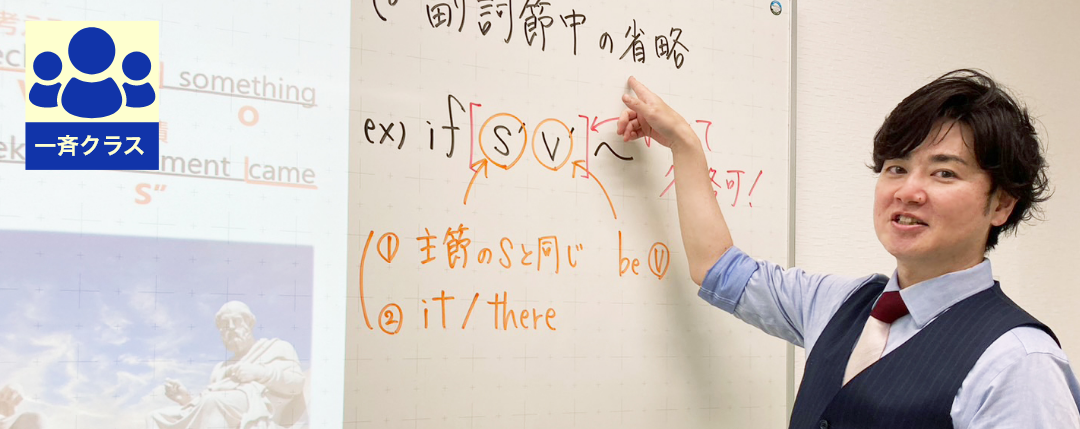 一斉クラス
something
O
ment came
S”
副詞節中の省略
ex) if [S' V'] ~
① 主節のSと同じ be Ⓥ
② it / there
略可!